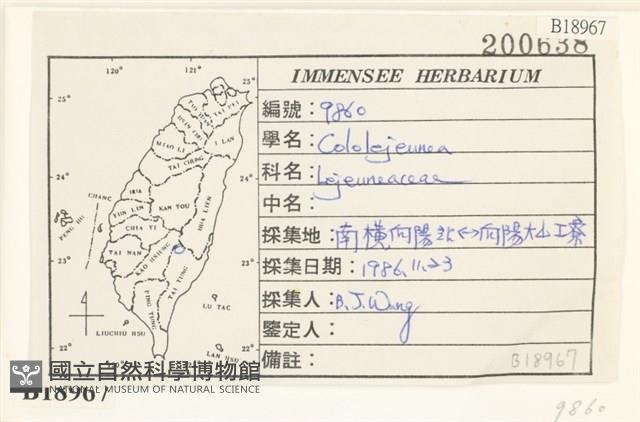 B18967
200638
IMMENSEE HERBARIUM
編號：9860
學名：Cololejeunea
科名：Lejeuneaceae
中名：
採集地：南橫向陽
向陽大山工寮
採集日期：1986.11.23
採集人：B.J.Wang
鑒定人：
備註：
B18967
120° 121°
25° 25°
TAI PEI
I LAN
MIAO LI
TAI CHUNG
24° 24°
CHANG
HUA
YUN LIN
KAN TOU
HUA LIEN
PENG HU
CHIA YI
TAI NAN
KAO HSIUNG
23° 23°
TAI TUNG
PING TUNG
LU TAO
LIUCHIU HSU
LAN HSU
22° 22°
國立自然科學博物館
NATIONAL MUSEUM OF NATURAL SCIENCE
B18967
9860